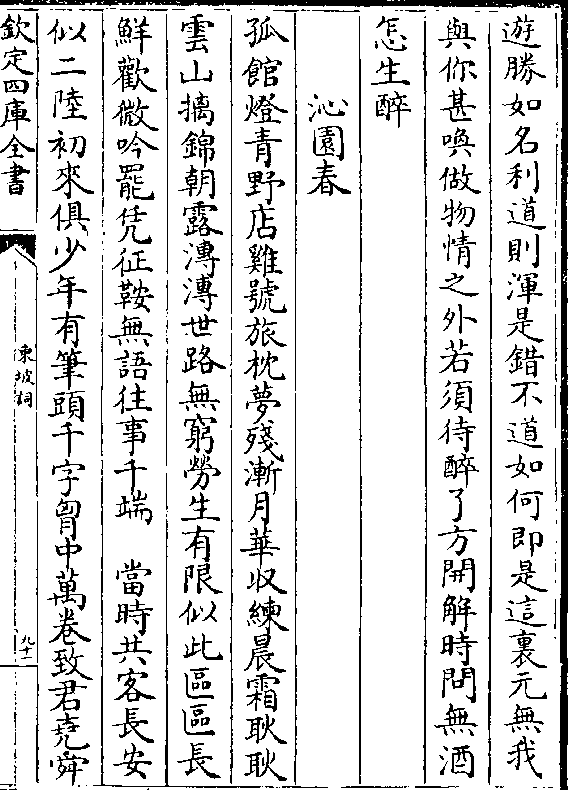 遊勝如名利道則渾是錯不道如何即是這裏元無我
與你甚喚做物情之外若須待醉了方開解時問無酒
怎生醉
沁園春
孤館燈青野店雞號旅枕夢殘漸月華收練晨霜耿耿
雲山摛錦朝露漙漙世路無窮勞生有限似此區區長
鮮歡微吟罷凭征鞍無語往事千端　當時共客長安
似二陸初來俱少年有筆頭千字胷中萬卷致君堯舜
欽定四庫全書
東坡詞
九十一